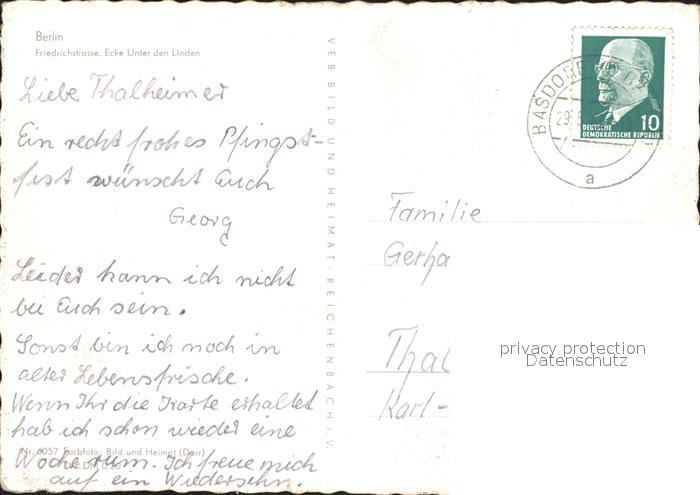 Berlin
Friedrichstrasse, Ecke Unter den Linden
Liebe Thalheimer
Ein recht frohes Pfingst-
fest wünscht Euch
Georg
Leider kann ich nicht
bei Euch sein.
Sonst bin ich noch in
alter Lebensfrische.
Wenn Ihr die Karte erhaltet
hab ich schon wieder eine
Nr. 6057 Farbfoto: Bild und Heimat (Dorr)
Woche rum. Ich freue mich
auf ein Wiedersehn.
VEB BILD UND HEIMAT · REICHENBACH i. V.
BASDORF
29.
a
10
DEUTSCHE
DEMOKRATISCHE REPUBLIK
Familie
Gerha
Thal
Karl-
privacy protection
Datenschutz